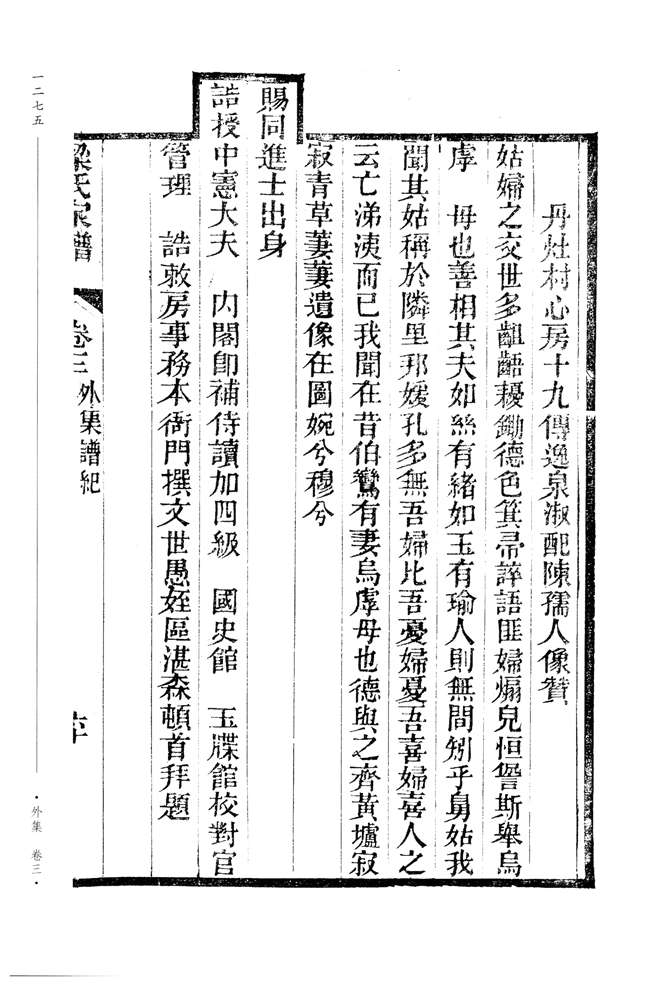 丹灶村心房十九傳逸泉淑配陳孺人像贊
姑婦之交世多齟齬耰鋤德色箕帚誶語匪婦煽兒恒詧斯舉烏
虖　母也善相其夫如絲有緒如玉有瑜人則無間矧乎舅姑我
聞其姑稱於隣里邦媛孔多無吾婦比吾憂婦憂吾喜婦喜人之
云亡涕洟而已我聞在昔伯鸞有妻烏虖母也德與之齊黃壚寂
寂青草萋萋遺像在圖婉兮穆兮
賜同進士出身
誥授中憲大夫　内閣卽補侍讀加四級　國史館　玉牒館校對官
管理　誥敕房事務本衙門撰文世愚姪區湛森頓首拜題
梁氏家譜　卷三　外集譜紀
一二七五
·外集　卷三·